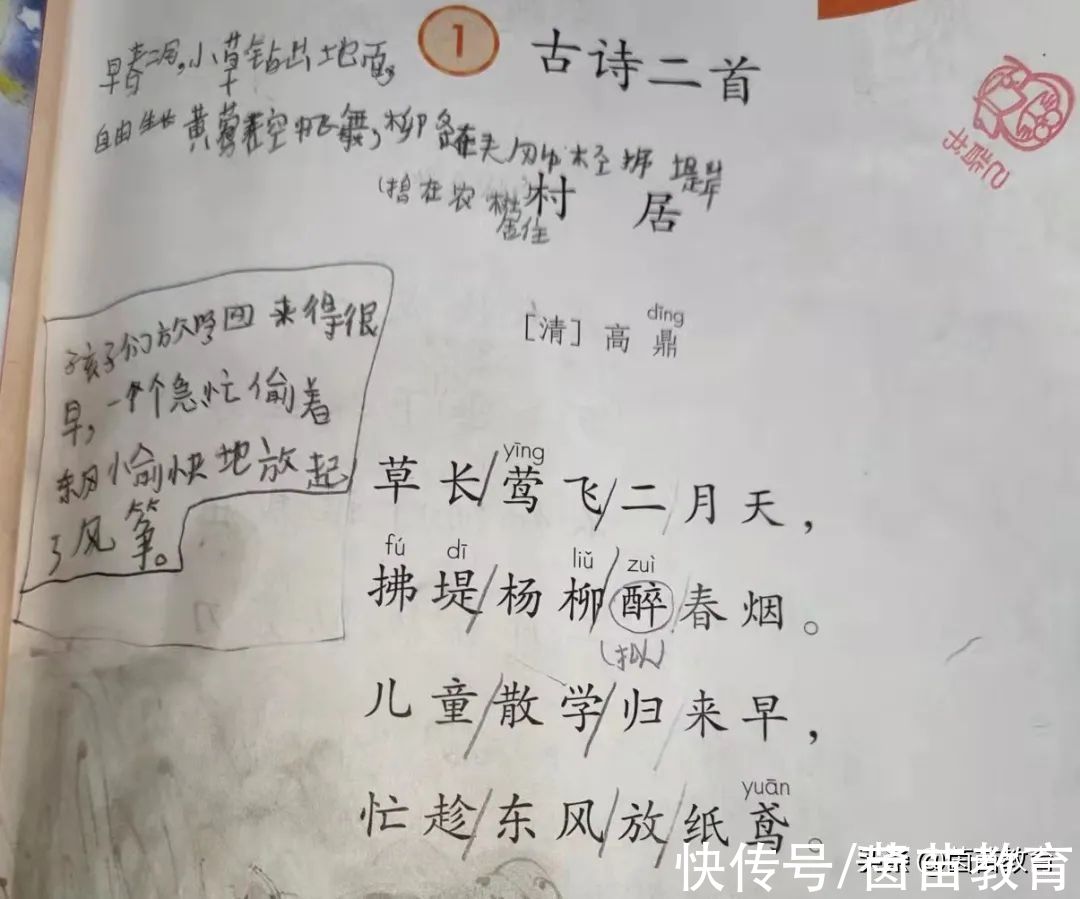 1 古诗二首
早春二月,小草钻出地面,
自由生长 黄莺在空中飞舞,柳条
堤岸
(指在农村
居住
村 居
[清] 高 鼎
dīng
孩子们放学回来得很
早,一个个急忙偷着
东风愉快地放起
了风筝。
yīng
草长/莺飞/二/月天,
fú dī liǔ zuì
拂堤/杨柳/醉/春烟。
(拟人)
儿童/散学/归/来早,
yuān
忙趁/东风/放/纸鸢。
己借书
快传号/茵苗教育
头条 @茵苗教育